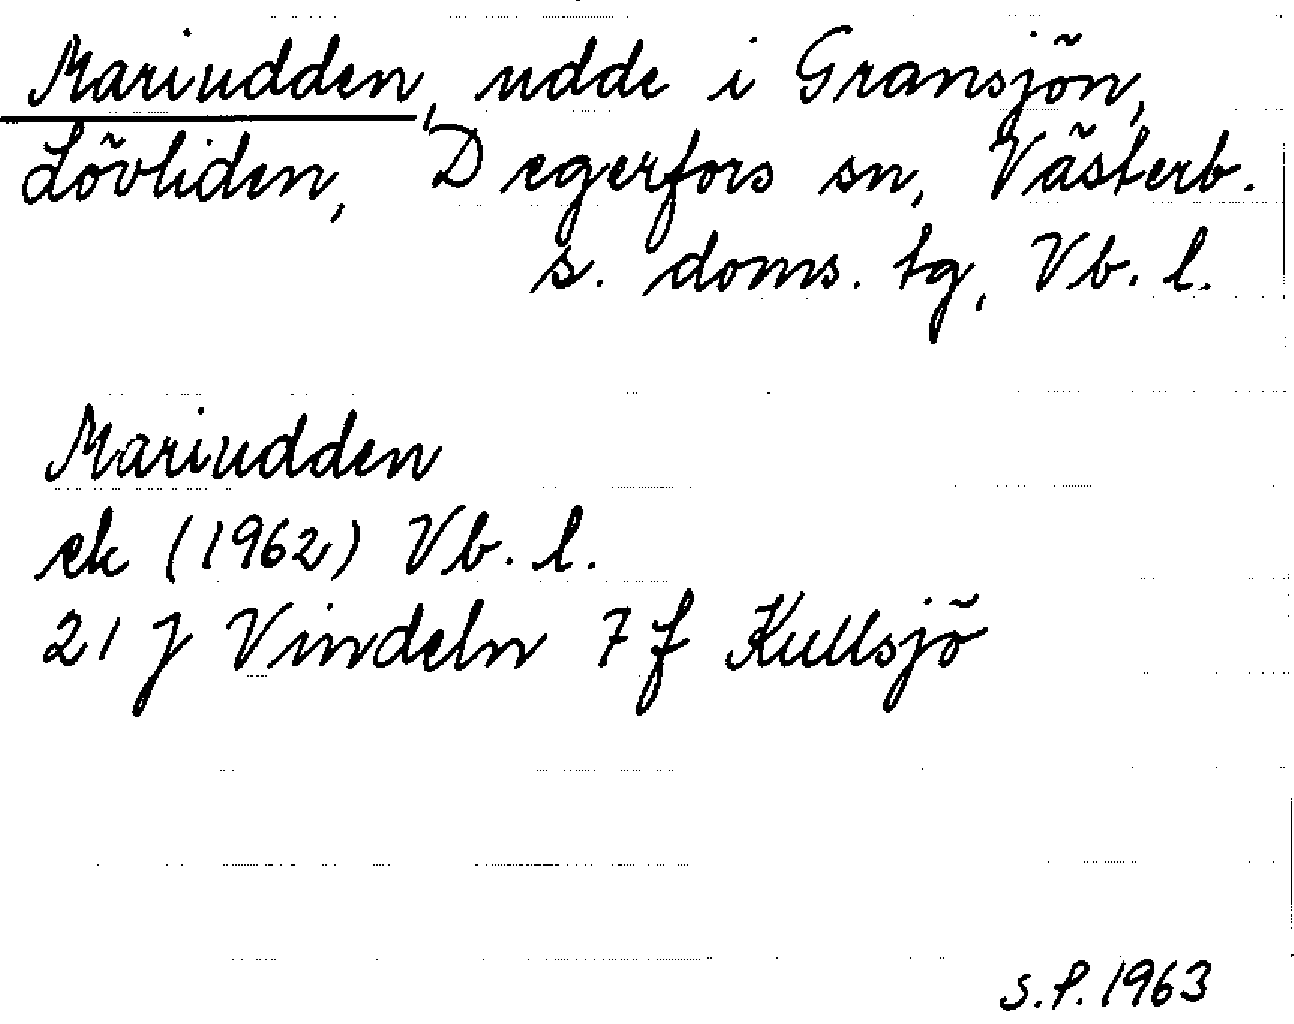 Mariudden, udde i Gransjön,
Lövliden, Degerfors sn, Västerb.
s. doms. tg, Vb. l.
Mariudden
ek (1962) Vb. l.
21 J Vindeln 7 f Kullsjö
S.P. 1963